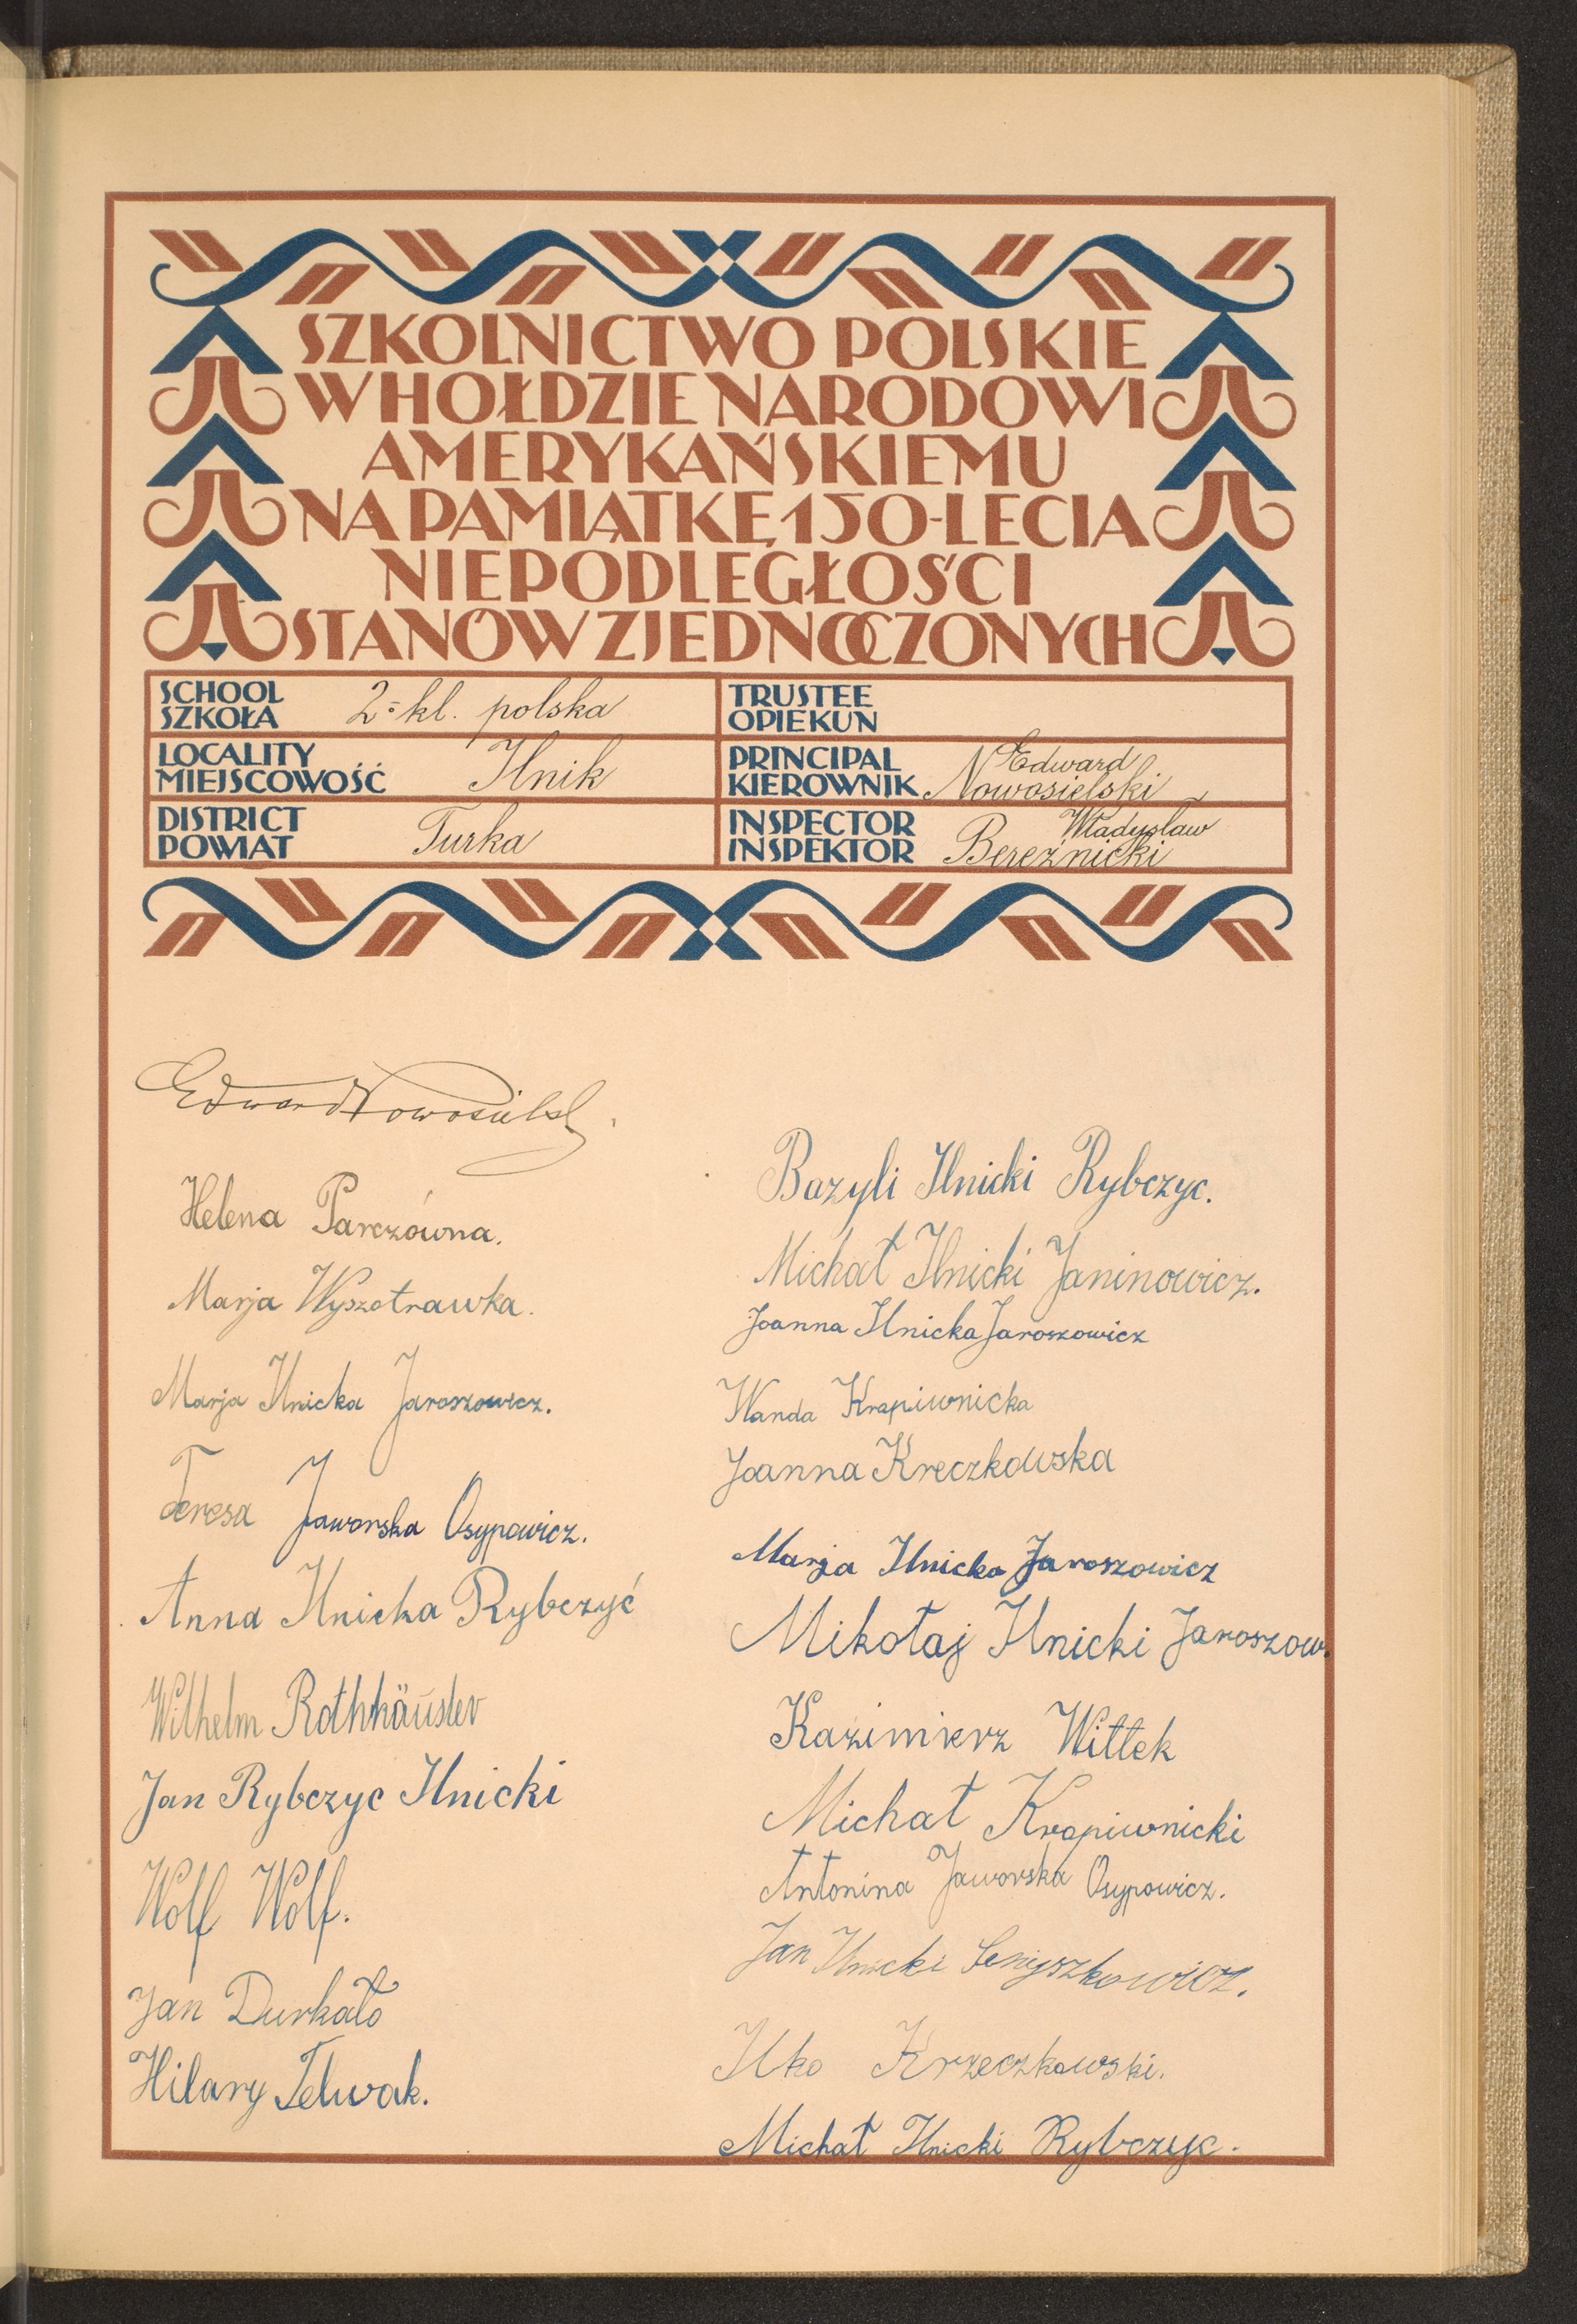 SZKOLNICTWO POLSKIE
W HOŁDZIE NARODOWI
AMERYKAŃSKIEMU
NA PAMIĄTKĘ 150-LECIA
NIEPODLEGŁOŚCI
STANÓW ZJEDNOCZONYCH
SCHOOL
SZKOŁA 2-kl. polska
TRUSTEE
OPIEKUN
LOCALITY
MIEJSCOWOŚĆ Ilnik
PRINCIPAL Edward
KIEROWNIK Nowosielski
DISTRICT
POWIAT Turka
INSPECTOR Władysław
INSPEKTOR Bereźnicki
Edward Nowosielski
Helena Parczówna.
Marja Wyszotrawka.
Marja Ilnicka Jaroszowicz.
Teresa Jaworska Osypowicz.
Anna Ilnicka Rybczyć
Wilhelm Rothhäusler
Jan Rybczyc Ilnicki
Wolf Wolf.
Jan Durkało
Hilary Telwak.
Bazyli Ilnicki Rybczyc.
Michał Ilnicki Janinowicz.
Joanna Ilnicka Jaroszowicz
Wanda Krapiwnicka
Joanna Kreczkowska
Marja Ilnicka Jaroszowicz
Mikołaj Ilnicki Jaroszow.
Kazimierz Wittek
Michał Krapiwnicki
Antonina Jaworska Osypowicz.
Jan Ilnicki
Ilko Krzeczkowski.
Michał Ilnicki Rybczyc.